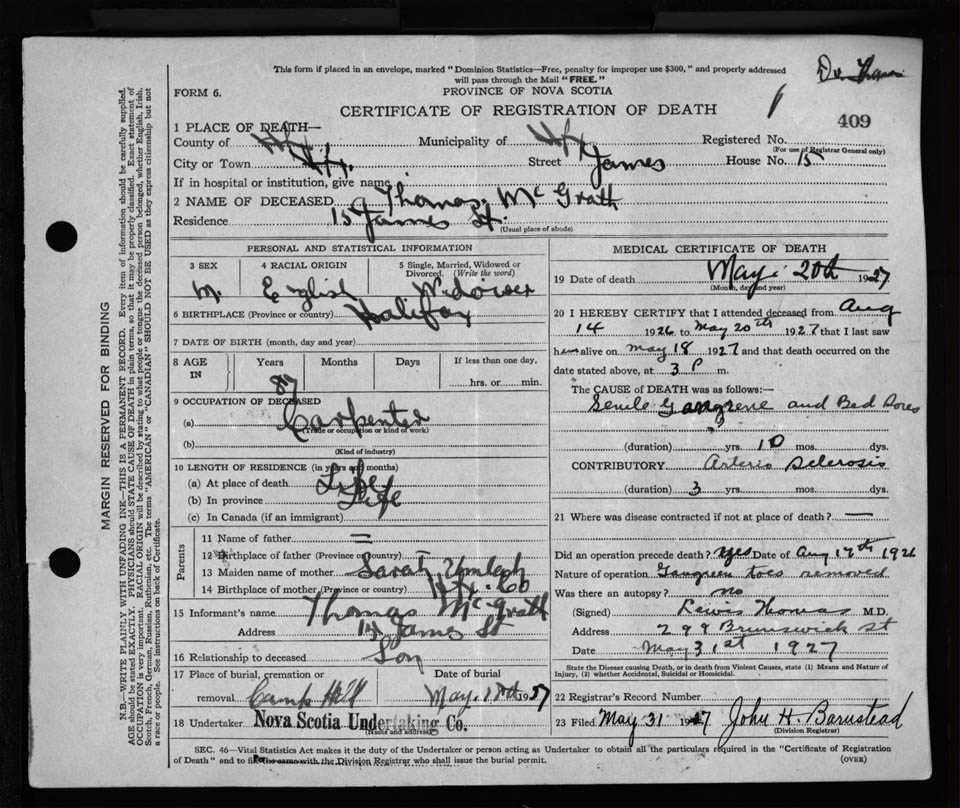 This form if placed in an envelope, marked "Dominion Statistics—Free, penalty for improper use $300," and properly addressed
will pass through the Mail "FREE."
FORM 6.
PROVINCE OF NOVA SCOTIA
CERTIFICATE OF REGISTRATION OF DEATH
409
1 PLACE OF DEATH—
County of Hfx Municipality of Hfx Registered No.
(For use of Registrar General only)
City or Town Hfx. Street James House No. 15
If in hospital or institution, give name
2 NAME OF DECEASED Thomas McGrath
Residence 15 James St.
(Usual place of abode)
PERSONAL AND STATISTICAL INFORMATION
3 SEX 4 RACIAL ORIGIN 5 Single, Married, Widowed or
Divorced. (Write the word)
M. English Widower
6 BIRTHPLACE (Province or country) Halifax
7 DATE OF BIRTH (month, day and year)
8 AGE IN Years Months Days If less than one day,
87 hrs. or min.
9 OCCUPATION OF DECEASED
(a) Carpenter
(Trade or occupation or kind of work)
(b)
(Kind of industry)
10 LENGTH OF RESIDENCE (in years and months)
(a) At place of death Life
(b) In province Life
(c) In Canada (if an immigrant)
Parents
11 Name of father —
12 Birthplace of father (Province or country) —
13 Maiden name of mother Sarah
14 Birthplace of mother (Province or country) Hfx Co
15 Informant's name Thomas McGrath
Address 15 James St
16 Relationship to deceased Son
17 Place of burial, cremation or Date of burial
removal Camp Hill May 1927
18 Undertaker Nova Scotia Undertaking Co.
(Name and address)
MEDICAL CERTIFICATE OF DEATH
19 Date of death May 20th 1927
(Month, day and year)
20 I HEREBY CERTIFY that I attended deceased from Aug
14 1926 to May 20th 1927 that I last saw
him alive on May 18 1927 and that death occurred on the
date stated above, at 3 P m.
The CAUSE OF DEATH was as follows:—
Senile Gangrene and Bed Sores
(duration) yrs. 10 mos. dys.
CONTRIBUTORY Arterio Sclerosis
(duration) 3 yrs. mos. dys.
21 Where was disease contracted if not at place of death? —
Did an operation precede death? Yes Date of Aug 17th 1926
Nature of operation Gangreen toes removed
Was there an autopsy? no
(Signed) Lewis Thomas M.D.
Address 299 Brunswick St
Date May 31st 1927
State the Disease causing Death, or in death from Violent Causes, state (1) Means and Nature of
Injury, (2) whether Accidental, Suicidal or Homicidal.
22 Registrar's Record Number
23 Filed May 31 1927 John H. Barnstead
(Division Registrar)
SEC. 46—Vital Statistics Act makes it the duty of the Undertaker or person acting as Undertaker to obtain all the particulars required in the "Certificate of Registration
of Death" and to file the same with the Division Registrar who shall issue the burial permit. (OVER)
MARGIN RESERVED FOR BINDING
N.B.—WRITE PLAINLY WITH UNFADING INK—THIS IS A PERMANENT RECORD. Every item of information should be carefully supplied.
AGE should be stated EXACTLY. PHYSICIANS should STATE CAUSE OF DEATH in plain terms, so that it may be properly classified. Exact statement of
OCCUPATION is very important. RACIAL ORIGIN will be described by stating to what people or tongue the deceased person belonged, whether English, Irish,
Scotch, French, German, Russian, Ruthenian, etc. The terms "AMERICAN" or "CANADIAN" SHOULD NOT BE USED as they express citizenship but not
a race or people. See instructions on back of Certificate.